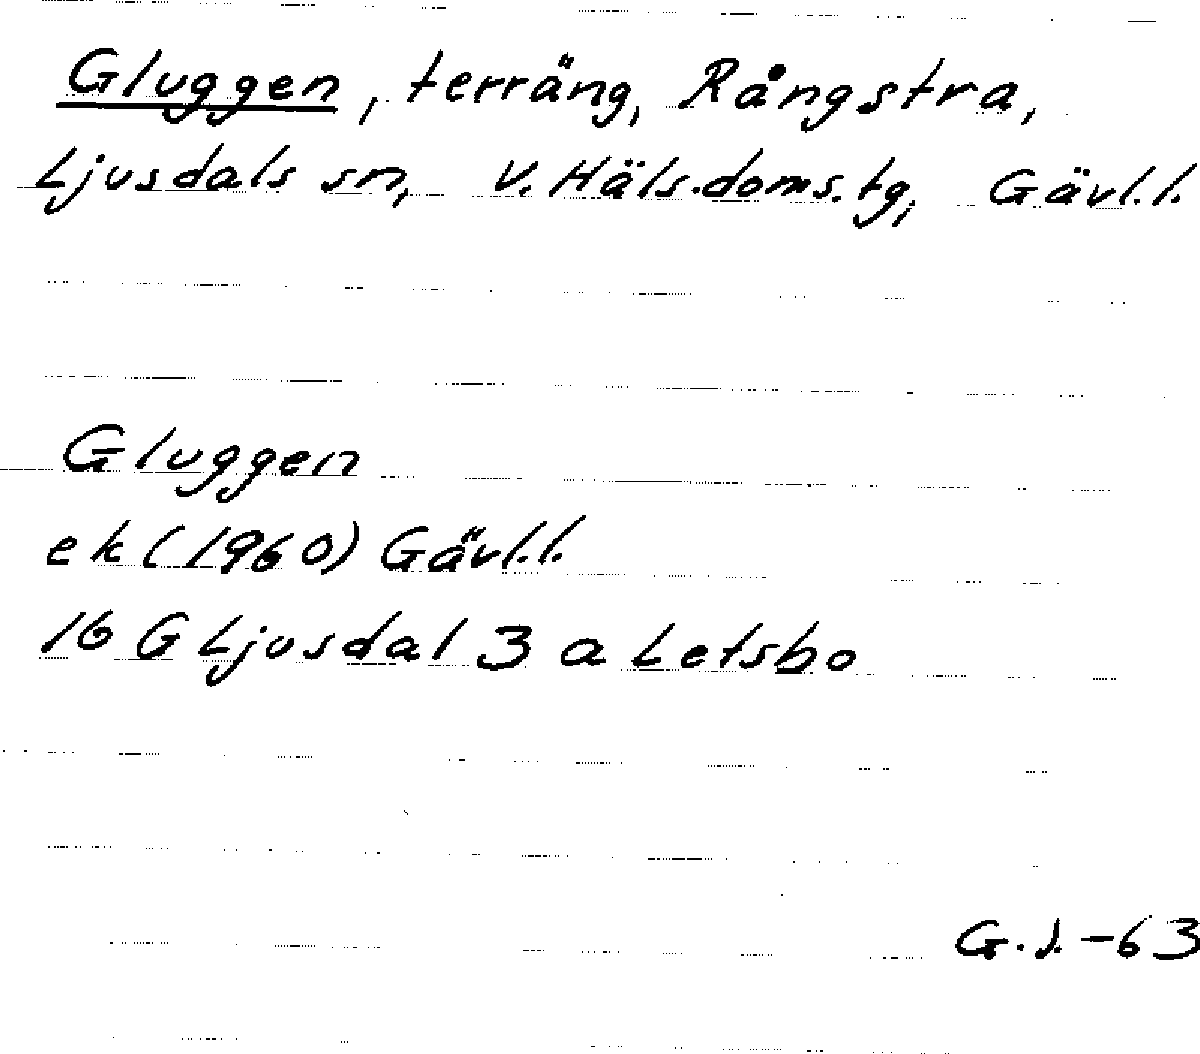 Gluggen, terräng, Rångstra,
Ljusdals sn, V. Häls. doms. tg, Gävl. l.
Gluggen
ek (1960) Gävl. l.
16 G Ljusdal 3 a Letsbo
G. J. -63